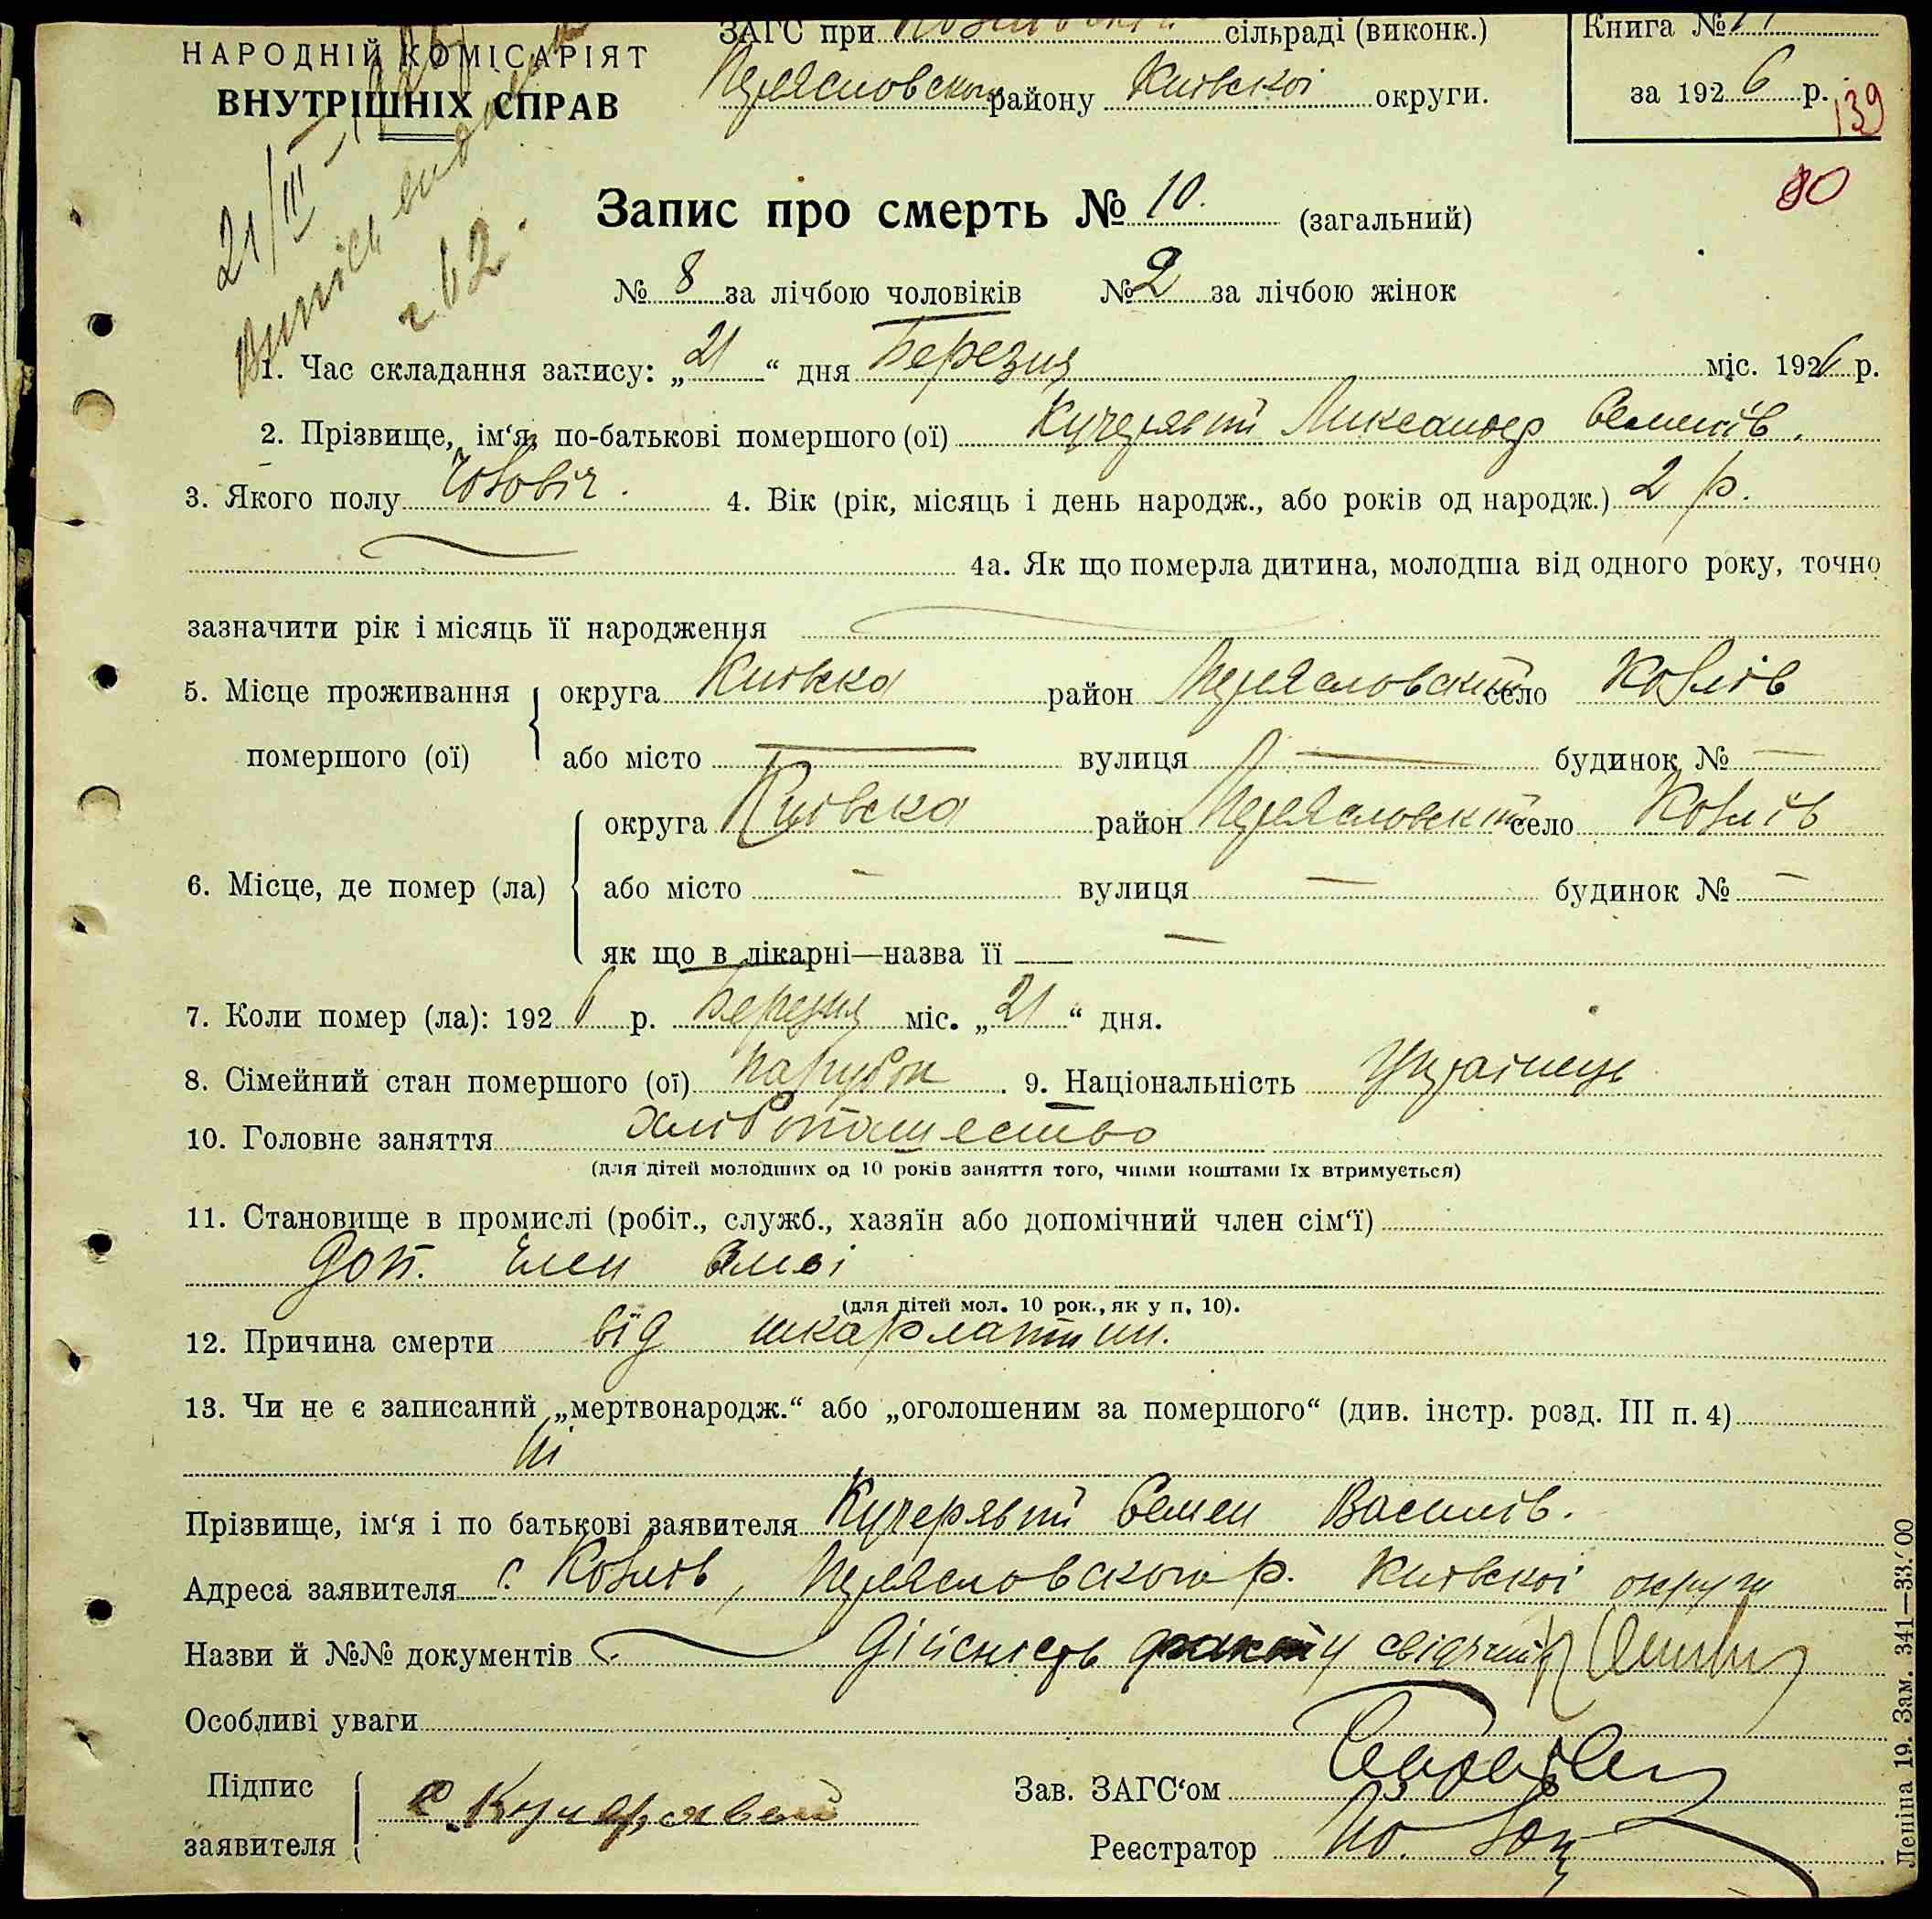 НАРОДНІЙ КОМІСАРІЯТ
ВНУТРІШНІХ СПРАВ
ЗАГС при сільраді (виконк.)
Переясловского району Київскої округи.
Книга №
за 1926 р.
139
80
21/III
Витіс видано
ч 62.
Запис про смерть № 10. (загальний)
№ 8 за лічбою чоловіків № 2 за лічбою жінок
1. Час складання запису: „21“ дня Березня міс. 1926 р.
2. Прізвище, ім‘я, по-батькові помершого (ої) Кучерявий Ликсандер Семенів.
3. Якого полу Чоловіч. 4. Вік (рік, місяць і день народж., або років од народж.) 2 р.
4а. Як що померла дитина, молодша від одного року, точно
зазначити рік і місяць її народження
5. Місце проживання помершого (ої) округа Київска район Переясловский село Козлів
або місто — вулиця — будинок № —
6. Місце, де помер (ла) округа Київска район Переясловский село Козлів
або місто — вулиця — будинок № —
як що в лікарні—назва її —
7. Коли помер (ла): 1926 р. Березня міс. „21“ дня.
8. Сімейний стан помершого (ої) парубок. 9. Національність Українець
10. Головне заняття хлібопашество
(для дітей молодших од 10 років заняття того, чиїми коштами їх втримується)
11. Становище в промислі (робіт., служб., хазяїн або допомічний член сім‘ї)
Доп. член
(для дітей мол. 10 рок., як у п. 10).
12. Причина смерти від шкарлатини.
13. Чи не є записаний „мертвонародж.“ або „оголошеним за помершого“ (див. інстр. розд. III п. 4)
Ні
Прізвище, ім‘я і по батькові заявителя Кучерявий Семен Василів.
Адреса заявителя с. Козлів, Переясловского р. Київскої округи
Назви й №№ документів Дійсність факту свідчить
Особливі уваги
Підпис заявителя С Кучерявый
Зав. ЗАГС‘ом
Реєстратор
Леніна 19. Зам. 341—33